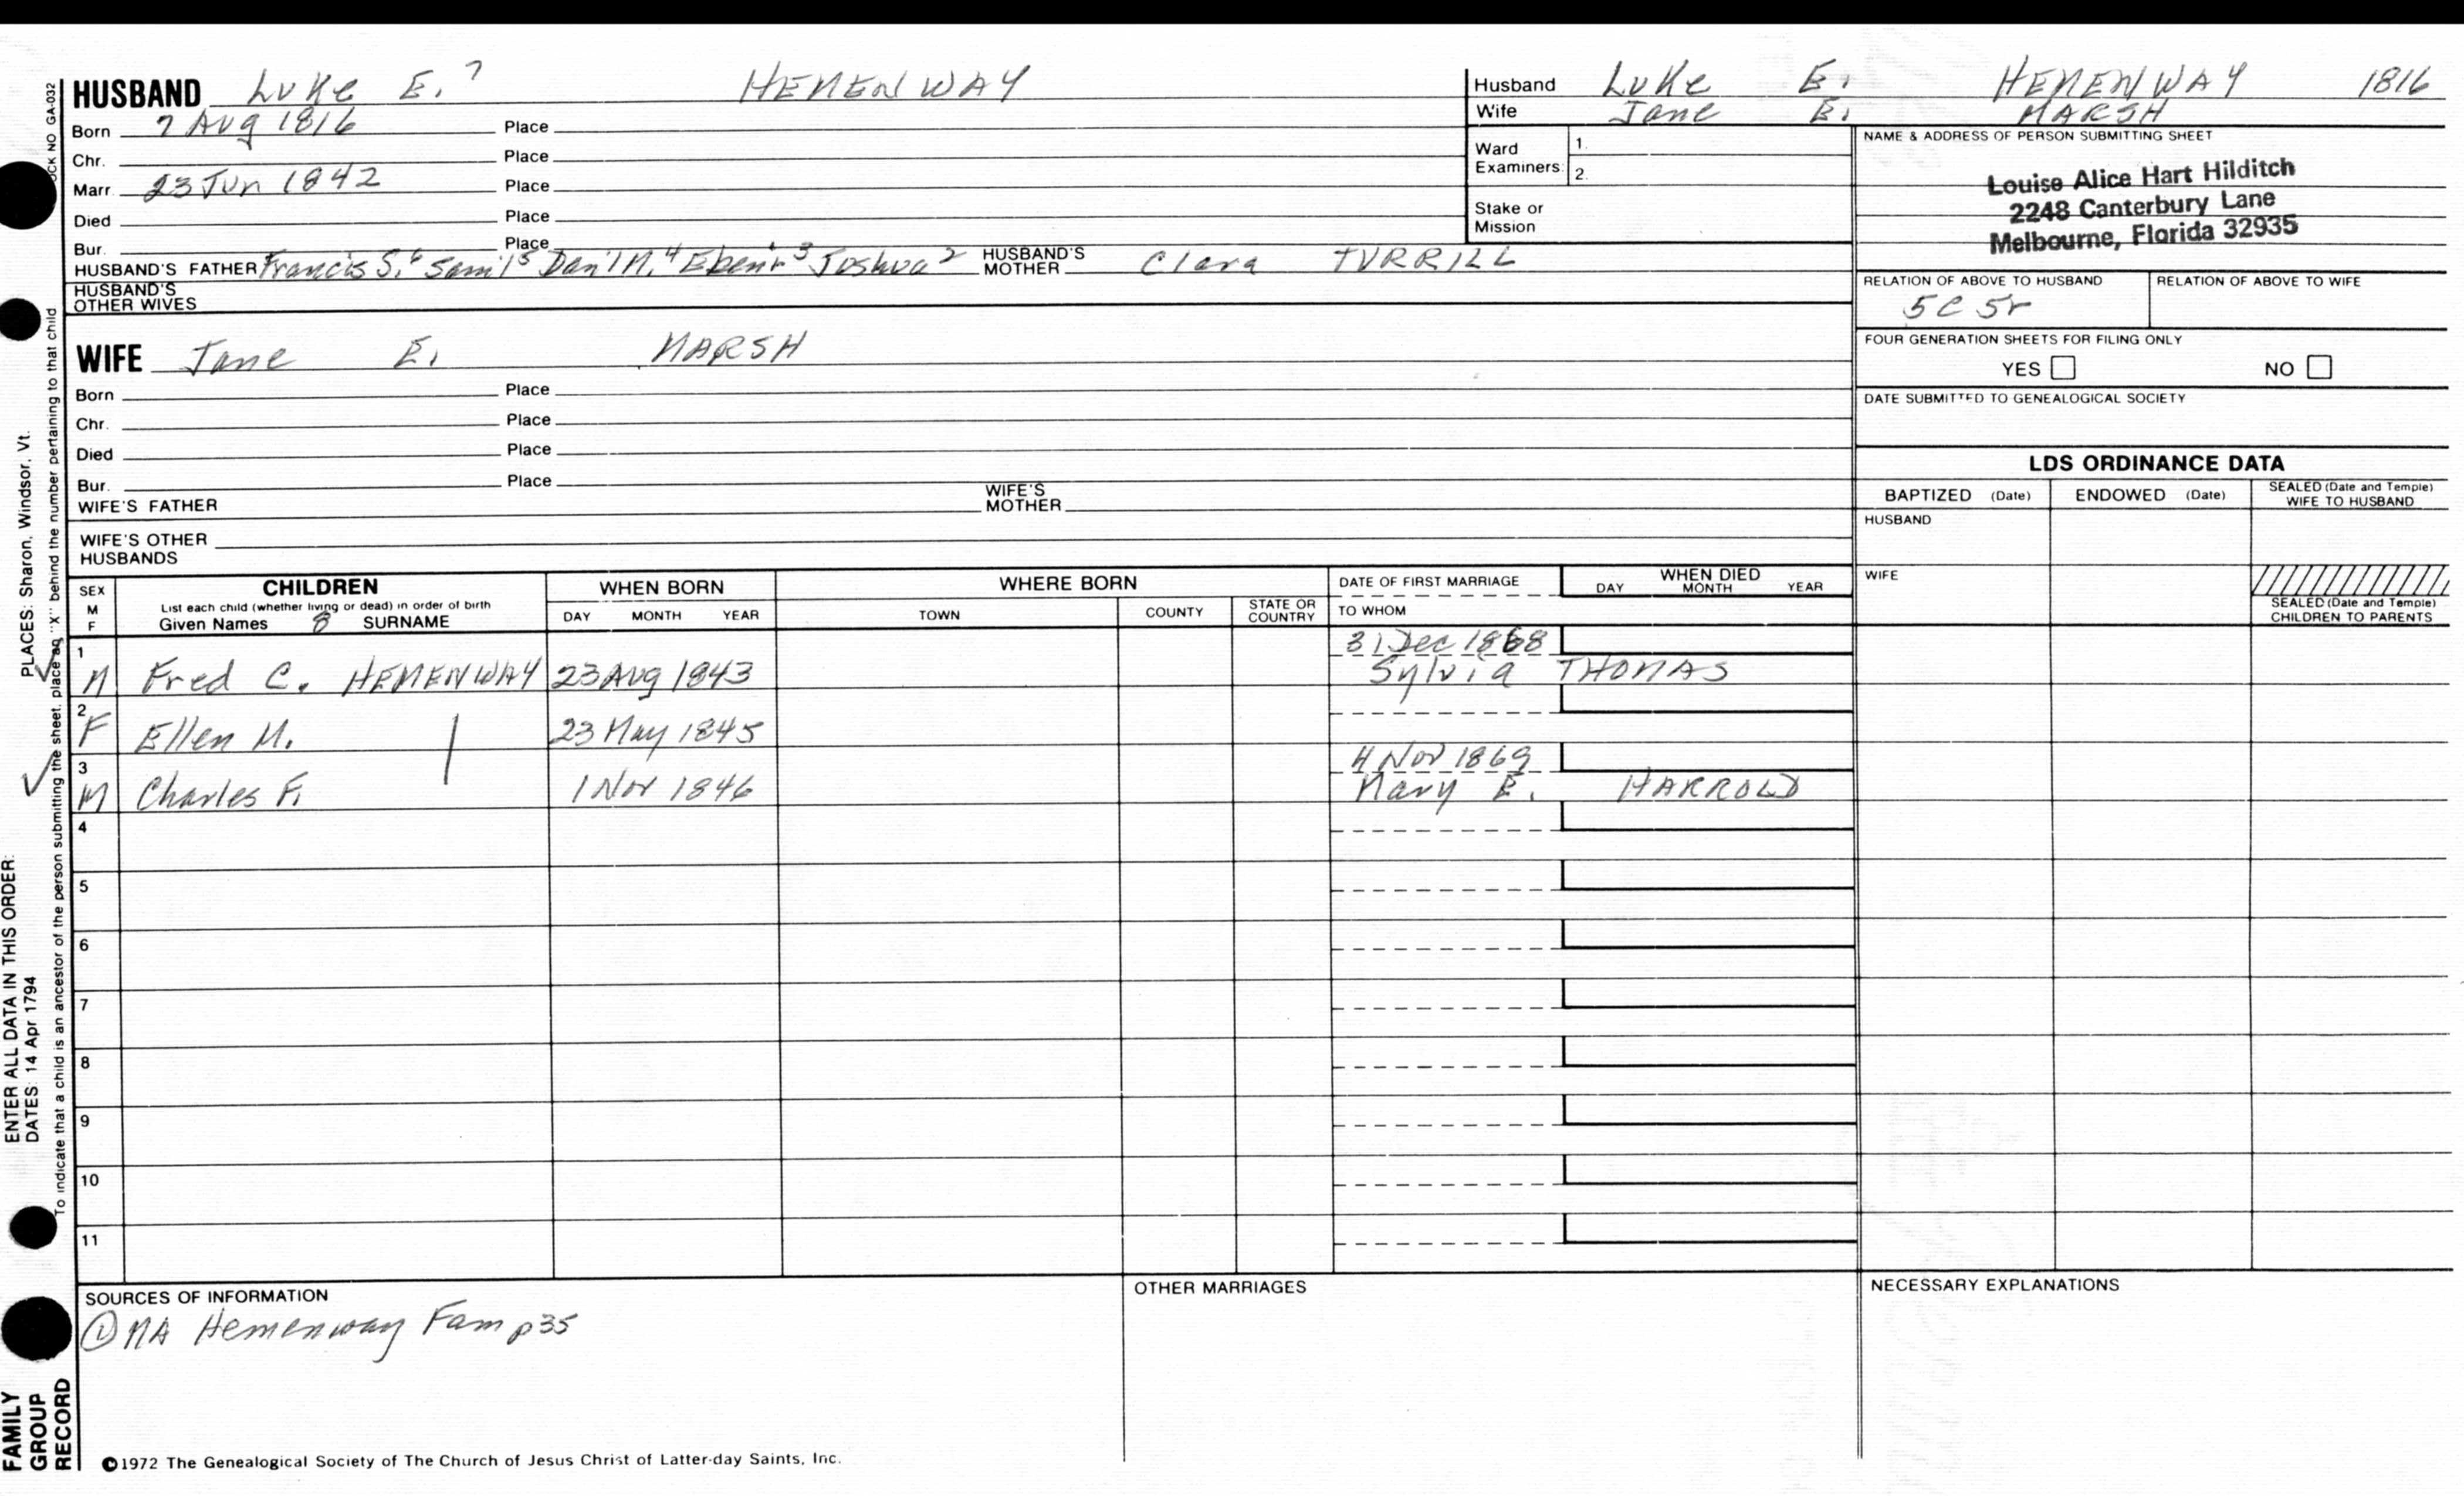 HUSBAND Luke E.7 HEMENWAY
Born 7 Aug 1816 Place
Chr. Place
Marr. 23 Jun 1842 Place
Died Place
Bur. Place
HUSBAND'S FATHER Francis S.6 Saml5 Dan'l M.4 Eben'r3 Joshua2 HUSBAND'S MOTHER Clara TURRILL
HUSBAND'S OTHER WIVES
WIFE Jane E. MARSH
Born Place
Chr. Place
Died Place
Bur. Place
WIFE'S FATHER WIFE'S MOTHER
WIFE'S OTHER HUSBANDS
Husband Luke E. HEMENWAY 1816
Wife Jane E. MARSH
Ward Examiners: 1. 2.
Stake or Mission
NAME & ADDRESS OF PERSON SUBMITTING SHEET
Louise Alice Hart Hilditch
2248 Canterbury Lane
Melbourne, Florida 32935
RELATION OF ABOVE TO HUSBAND RELATION OF ABOVE TO WIFE
5C 5r
FOUR GENERATION SHEETS FOR FILING ONLY
YES NO
DATE SUBMITTED TO GENEALOGICAL SOCIETY
LDS ORDINANCE DATA
BAPTIZED (Date) ENDOWED (Date) SEALED (Date and Temple) WIFE TO HUSBAND
HUSBAND
WIFE
SEALED (Date and Temple) CHILDREN TO PARENTS
SEX M F
CHILDREN
List each child (whether living or dead) in order of birth
Given Names 8 SURNAME
WHEN BORN
DAY MONTH YEAR
WHERE BORN
TOWN COUNTY STATE OR COUNTRY
DATE OF FIRST MARRIAGE
TO WHOM
WHEN DIED
DAY MONTH YEAR
1 31 Dec 1868
M Fred C. HEMENWAY 23 Aug 1843 Sylvia THOMAS
2
F Ellen M. 23 May 1845
3 4 Nov 1869
M Charles F. 1 Nov 1846 Mary E. HARROLD
4
5
6
7
8
9
10
11
SOURCES OF INFORMATION
① MA Hemenway Fam p35
OTHER MARRIAGES
NECESSARY EXPLANATIONS
©1972 The Genealogical Society of The Church of Jesus Christ of Latter-day Saints, Inc.
FAMILY
GROUP
RECORD
ENTER ALL DATA IN THIS ORDER:
DATES: 14 Apr 1794 PLACES: Sharon, Windsor, Vt.
To indicate that a child is an ancestor of the person submitting the sheet, place an "X" behind the number pertaining to that child
OCK NO GA-032